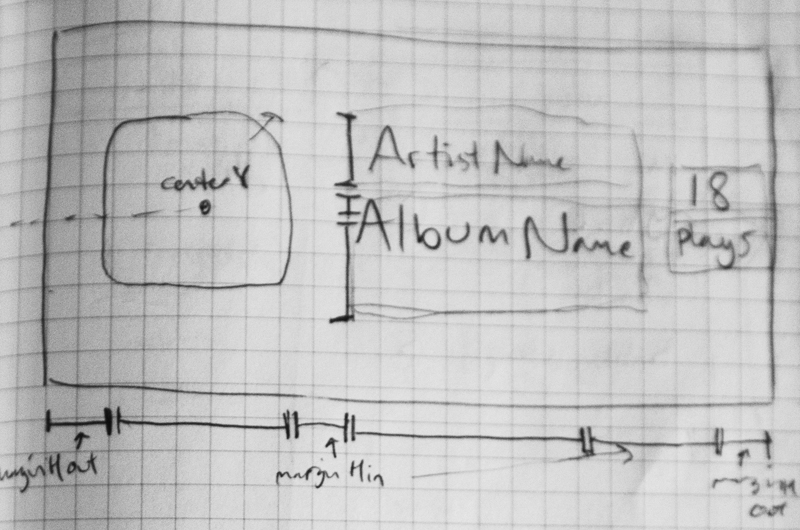 centerY
Artist Name
Album Name
18
plays
marginHout
marginHin